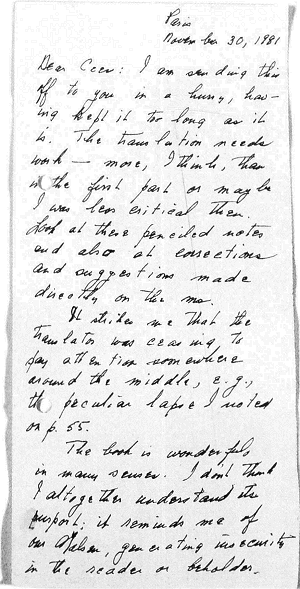 Paris
November 30, 1981
Dear Cees: I am sending this
off to you in a hurry, hav-
ing kept it too long as it
is. The translation needs
work — more, I think, than
in the first part or maybe
I was less critical then.
Look at these penciled notes
and also at corrections
and suggestions made
directly on the ms.
It strikes me that the
translator was ceasing to
pay attention somewhere
around the middle, e.g.,
the peculiar lapse I noted
on p. 55.
The book is wonderful
in many senses. I don't think
I altogether understand its
purport; it reminds me of
our Matson, generating insecurity
in the reader or beholder.